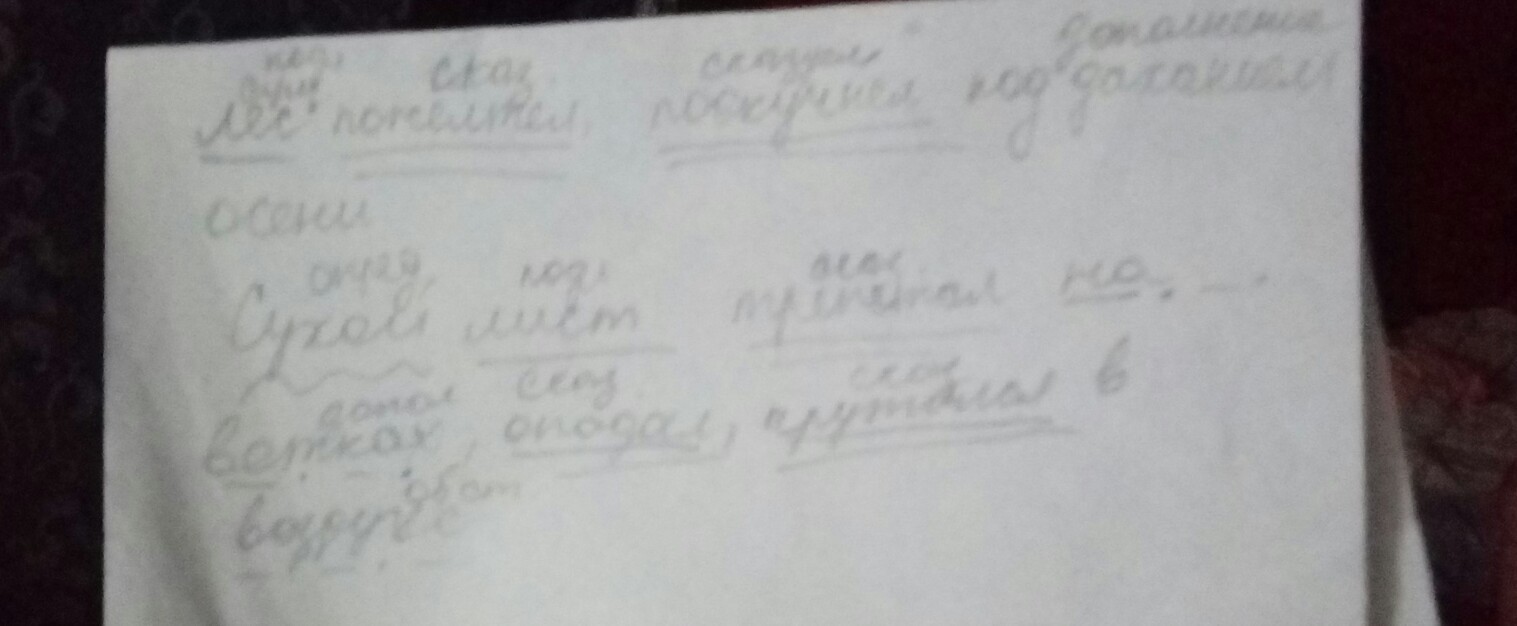 под. сказ. сказуем дополнение
Лес пожелтел, поскучнел под дыханием
осени
опред. под. сказ.
Сухой лист трепетал на
допол сказ. сказ
ветках, опадал, крутился в
обст
воздухе